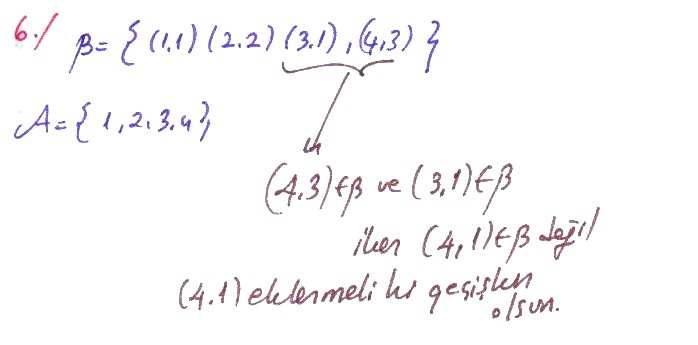 6./ β = { (1.1) (2.2) (3.1), (4,3) }
A = { 1, 2. 3. 4 }
(4.3) ∈ β ve (3,1) ∈ β
iken (4,1) ∈ β değil
(4.1) eklenmeli ki geçişken
olsun.